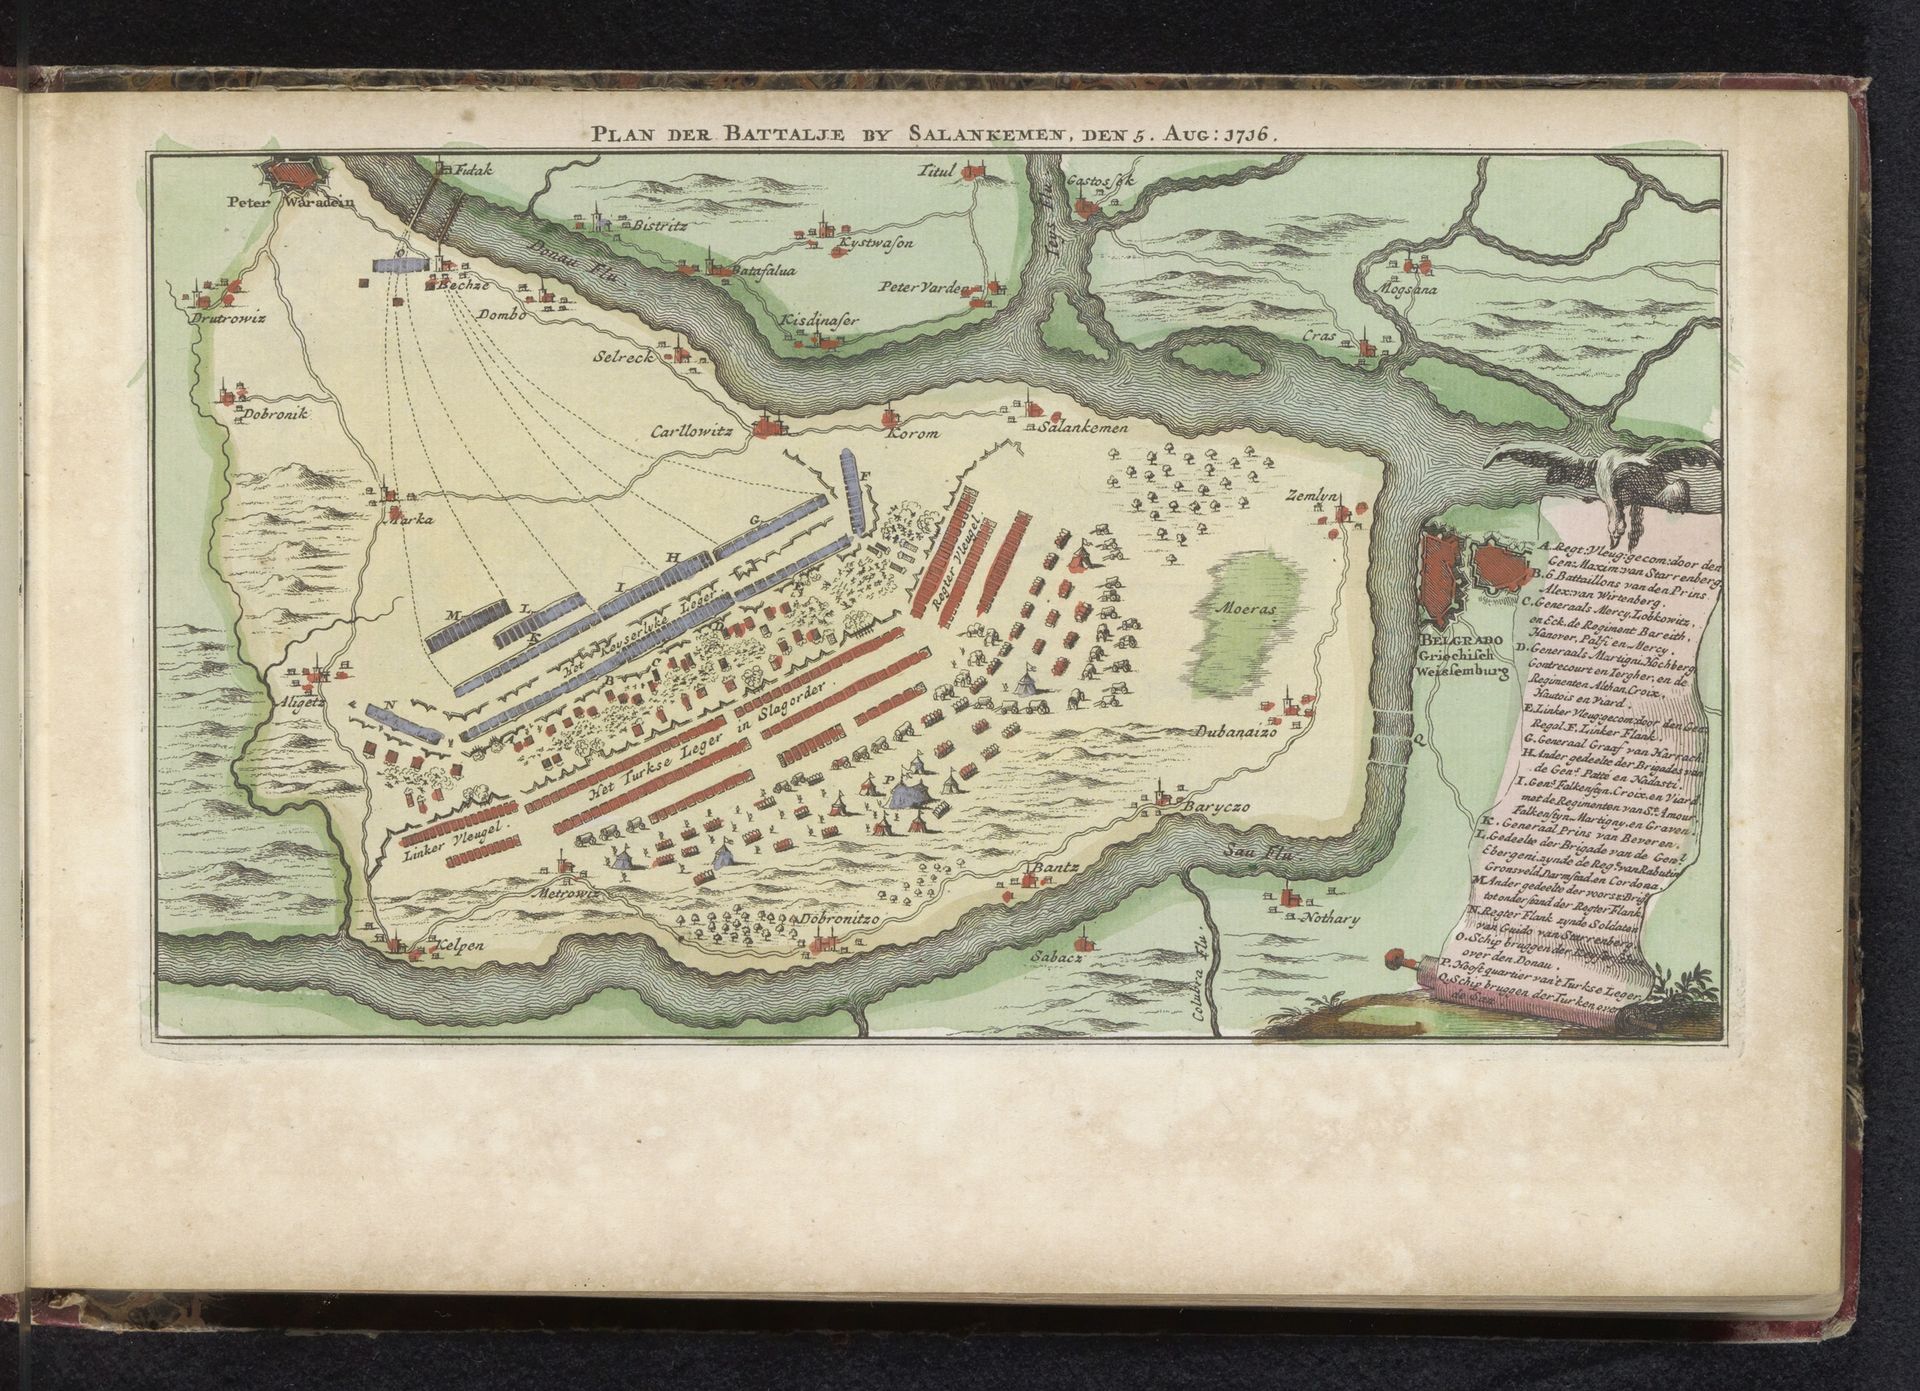 PLAN DER BATTALJE BY SALANKEMEN, DEN 5. AUG: 1716.
Peter Waradein
Futak
Titul
Gastosſek
Bistritz
Kystwaſon
Donau Flu.
Teys Flu.
Bataſalua
O
Bechze
Peter Varden
Mogsana
Drutrowiz
Dombo
Kisdinaſer
Selreck
Cras
Dobronik
Carllowitz
Korom
Salankemen
Marka
Zemlyn
F
G
H
I
L
M
K
Het Keyserlyke Leger
Regter Vleugel
Moeras
D
C
B
N
Aligetz
BELGRADO
Griechiſch
Weisſemburg
Het Turkse Leger in Slagorder.
Dubanaizo
Q
P
Linker Vleugel.
Baryczo
Sau Flu.
Bantz
Metrowiz
Dobronitzo
Nothary
Kelpen
Sabacz
Colubra Flu.
A. Regt: Vleug: gecom: door den
Gen: Maxim: van Starrenberg.
B. 6 Battaillons van den Prins
Alex: van Wirtenberg.
C. Generaals Mercy, Lobkowitz,
en Eck. de Regiment Bareith,
Hanover, Palfi, en Mercy.
D. Generaals Martigni, Hochberg,
Gontrecourt en Jergher, en de
Regimenten Althan, Croix,
Hautois en Viard.
E. Linker Vleug: gecom: door den Gen.
Regal. F. Linker Flank.
G. Generaal Graaf van Harrach
H. Ander gedeelte der Brigades van
de Gen.ˢ Patte en Nadasti.
I. Gen.ˢ Falkenſtyn, Croix, en Viard
met de Regimenten van Sᵗ. Amour,
Falkenſtyn, Martigny, en Graven.
K. Generaal Prins van Beveren.
L. Gedeelte der Brigade van de Gen.ˡ
Ebergeni zynde de Reg.ᵗˢ van Rabutin
Gronsveld, Darmſtad, en Cordona.
M. Ander gedeelte der voorsz: Brig:
tot onderstand der Regter Flank.
N. Regter Flank zynde Soldaten
van Guido van Starrenberg.
O. Schip bruggen der
over den Donau.
P. Hooft quartier van't Turkse Leger.
Q. Schip bruggen der Turken over
de Sau